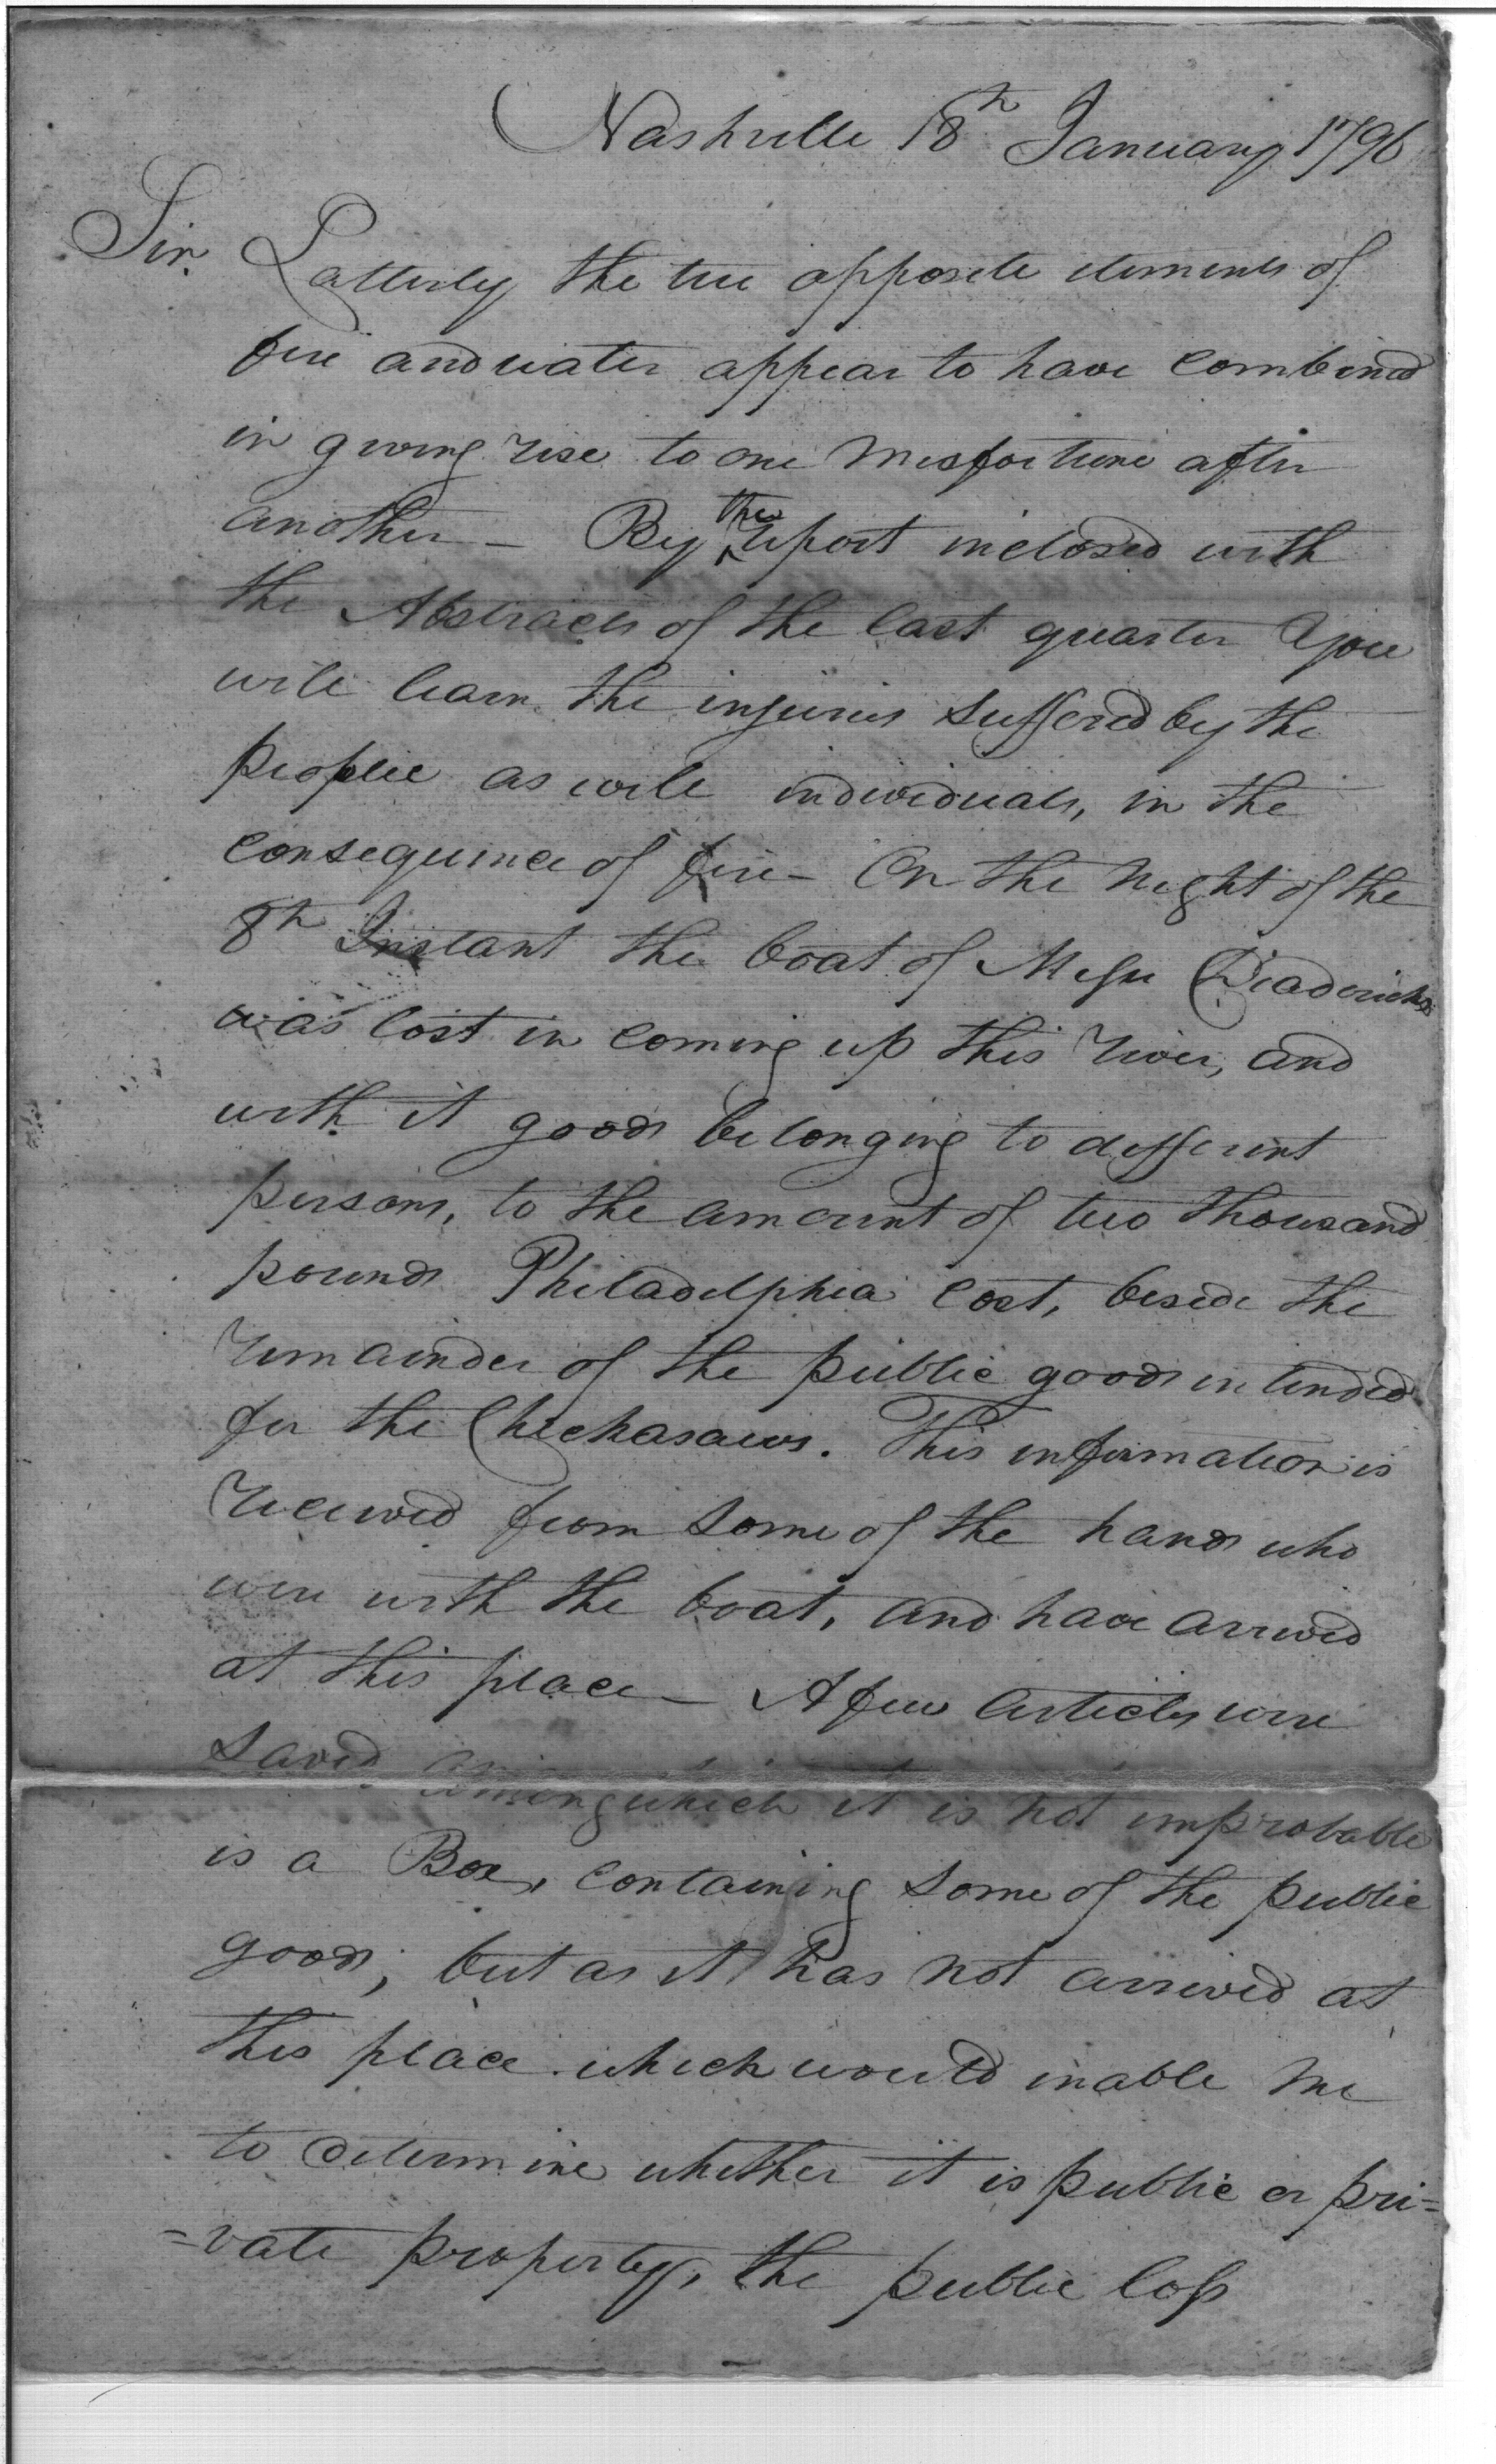 Nashville 18th January 1796
Sir. Latterly the two opposite elements of
fire and water appear to have combined
in giving rise to one misfortune after
another – By the report inclosed with
the Abstracts of the last quarter you
will learn the injuries suffered by the
people as well individuals, in the
consequence of fire – On the night of the
8th Instant the boat of Messrs Deadericks
was lost in coming up this river, and
with it goods belonging to different
persons, to the amount of two thousand
pounds Philadelphia Cost, beside the
remainder of the public goods intended
for the Chickasaws. This information is
received from some of the hands who
were with the boat, and have arrived
at this place – A few articles were
saved among which it is not improbable
is a Box, containing some of the public
goods; but as it has not arrived at
this place which would inable me
to determine whether it is public or pri=
=vate property, the public loss